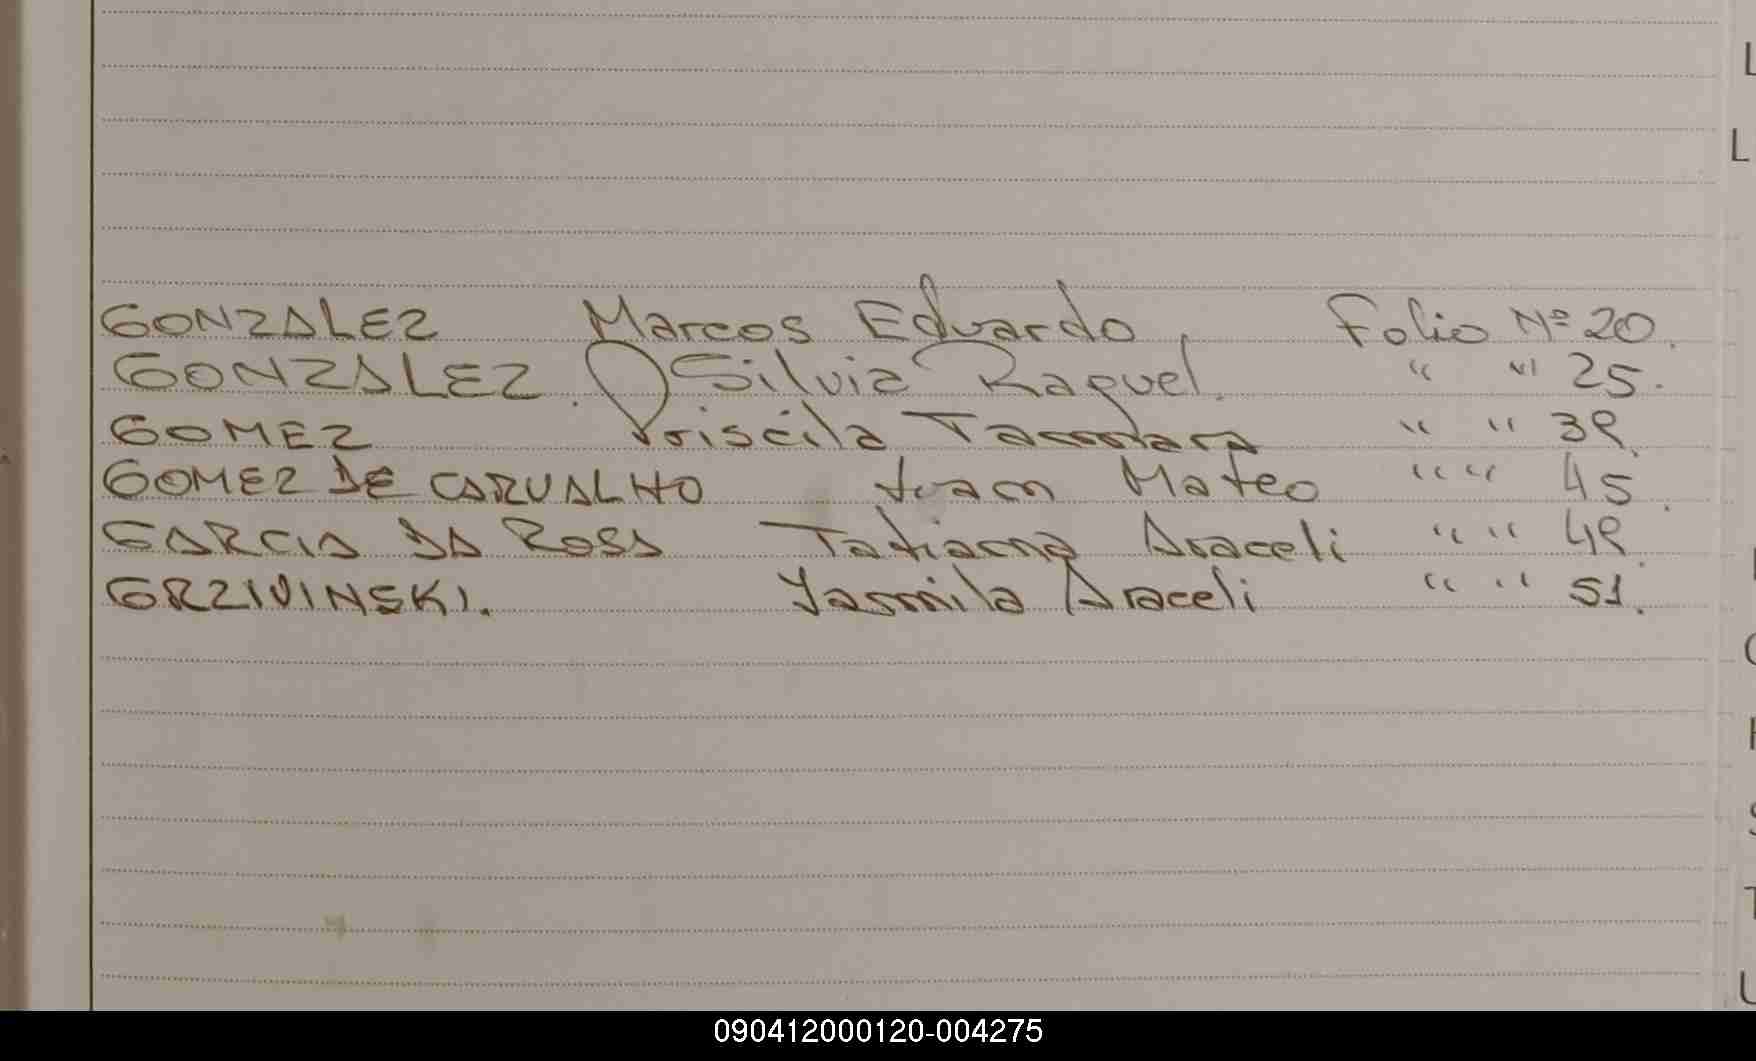 L
L
GONZALEZ Marcos Eduardo Folio Nº 20.
GONZALEZ. Silvia Raquel. " " 25.
GOMEZ Priscila Tammara " " 39.
GOMEZ DE CARVALHO Juan Mateo " " 45.
GARCIA DA ROSA Tatiana Araceli " " 49.
GRZIVINSKI. Yasmila Araceli " " 51.
090412000120-004275